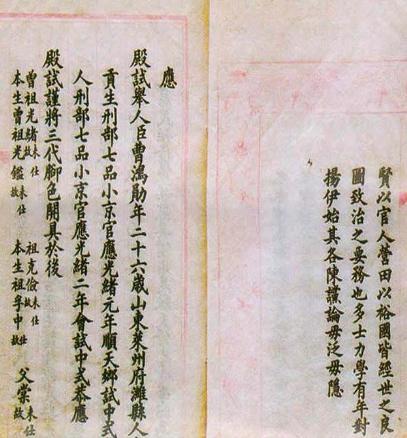 賢以官人營田以裕國皆經世之良
圖致治之要務也多士力學有年對
揚伊始其各陳讜論毋泛毋隱
應
殿試舉人臣曹鴻勛年二十六歲山東萊州府濰縣人
貢生刑部七品小京官應光緒元年順天鄉試中式
人刑部七品小京官應光緒二年會試中式恭應
殿試謹將三代腳色開具於後
曾祖光緒未仕故 祖克儉未仕故
本生曾祖光鑑未仕故 本生祖中仕故
父榮未仕故